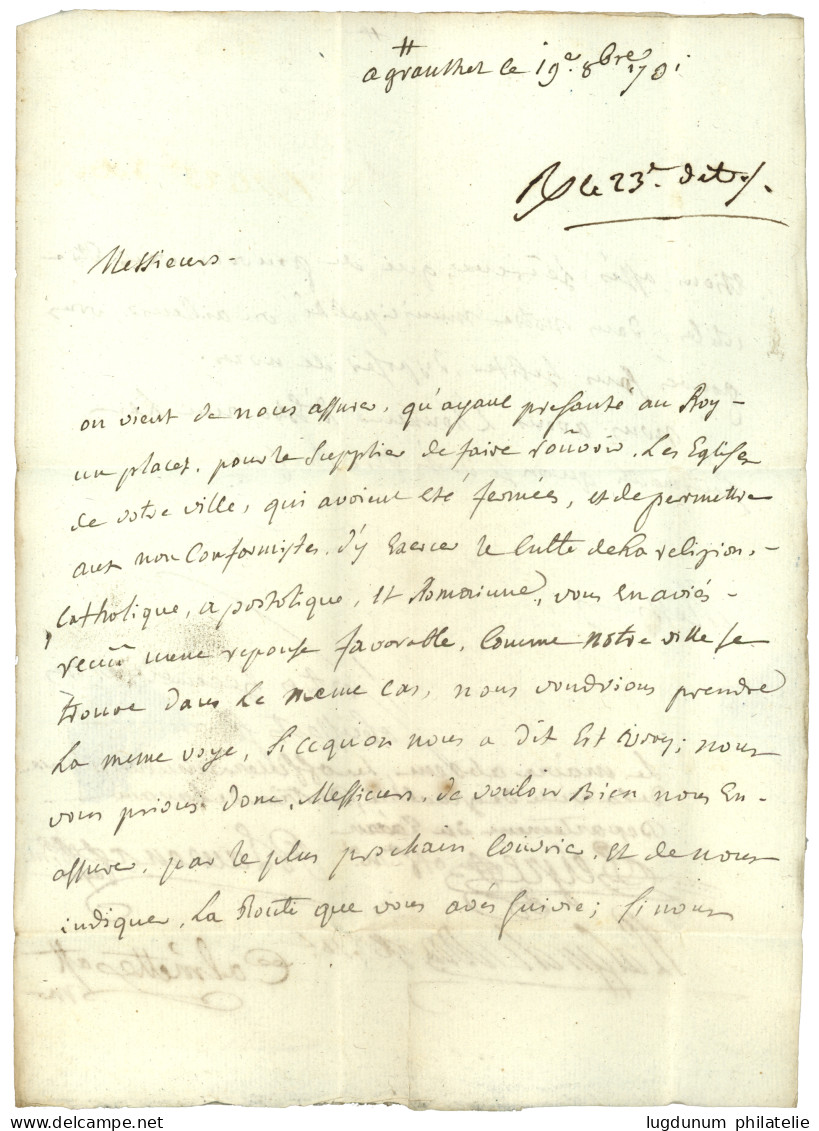 a graulhet le 19e. 8bre 1791
R le 23e. dit
Messieurs
on vient de nous assurer, qu'ayant présanté au Roy
un placet, pour le supplier de faire rouvrir. Les Eglises
de votre ville, qui avoient été fermées, et de permettre
aux non Conformistes, d'y Exercer le Culte de la religion,
Catholique, apostolique, et Romainne, vous en aviés
reçeu une reponse favorable, Comme notre ville se
trouve dans le meme cas, nous voudrions prendre
la meme voye, si ce qu'on nous a dit Est vray; nous
vous prions donc, Messieurs, de vouloir Bien nous En
assurer, par le plus prochain Courrier, et de nous
indiquer, la Route que vous avés suivie; si nous
© delcampe.net
lugdunum philatelie